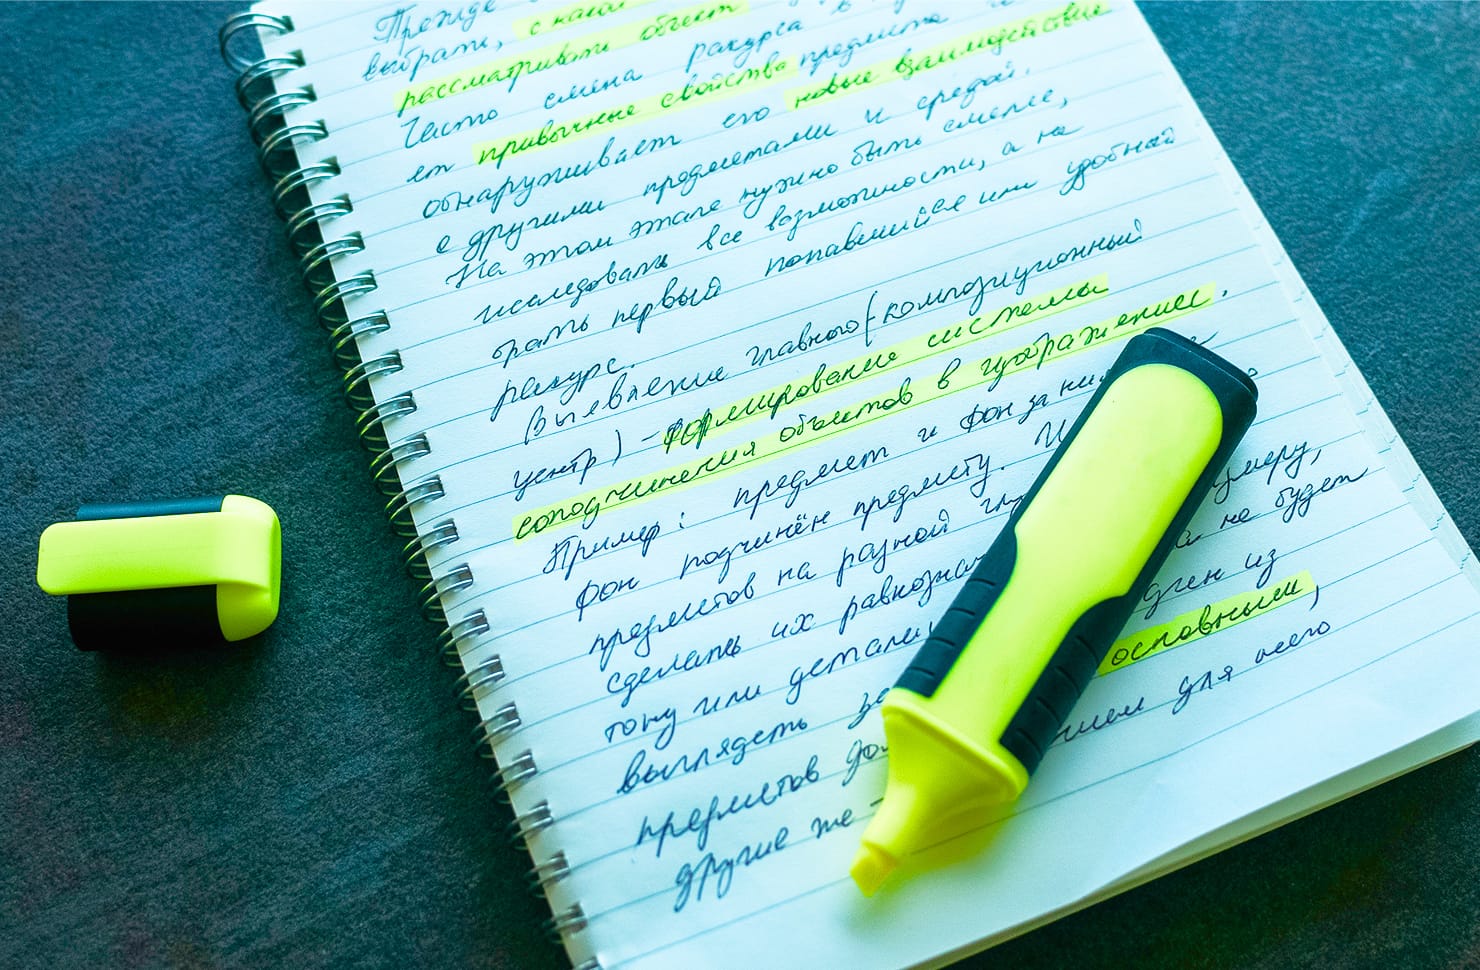 Прежде
выбрать, с какой
рассматривать объект
Часто смена ракурса в
ет привычные свойства предмета и
обнаруживает его новые взаимодействие
с другими предметами и средой.
На этом этапе нужно быть смелее,
исследовать все возможности, а не
брать первый попавшийся или удобный
ракурс.
Выявление главного (композиционный
центр) – формирование системы
соподчинения объектов в изображении.
Пример: предмет и фон за ним
фон подчинён предмету.
предметов на разной
сделать их равнозна
тону или деталям не будет
выглядеть один из
предметов основным,
другие же – для него